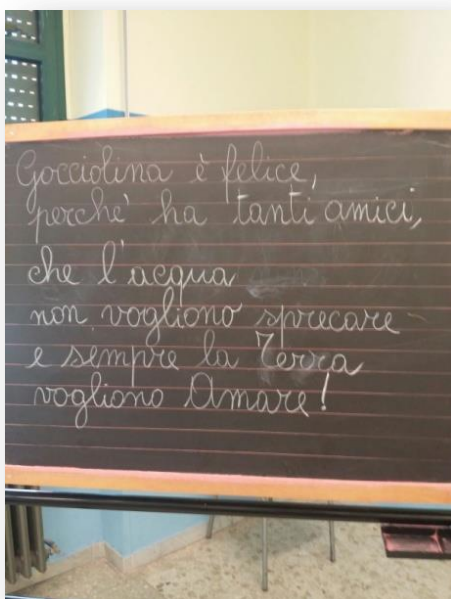 Gocciolina è felice,
perchè ha tanti amici,
che l'acqua
non vogliono sprecare
e sempre la Terra
vogliono Amare!